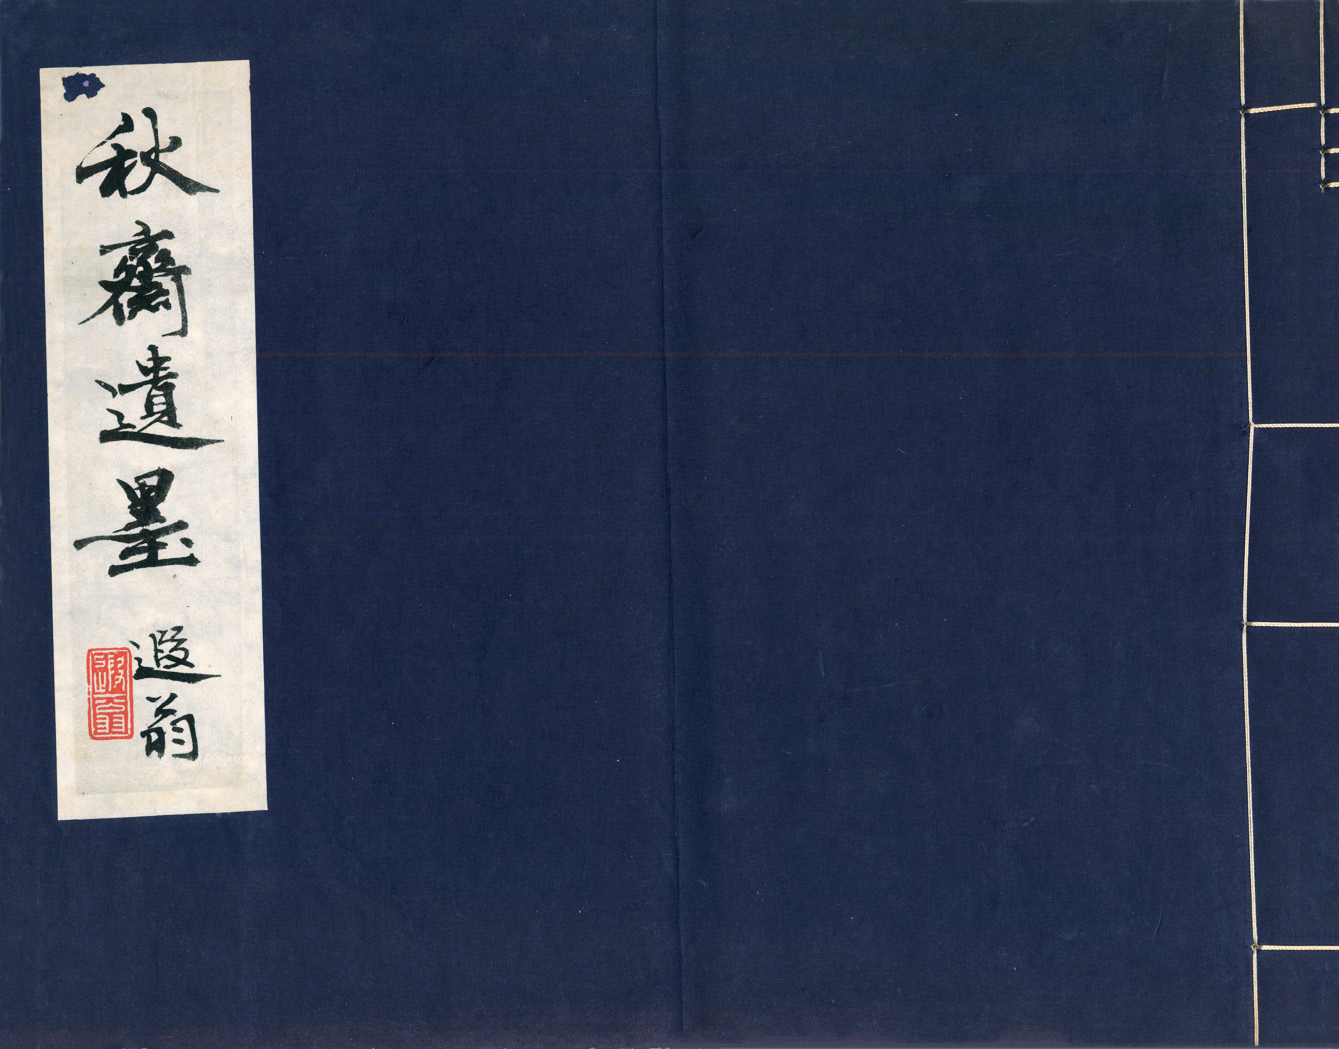 秋齋遺墨
遐翁